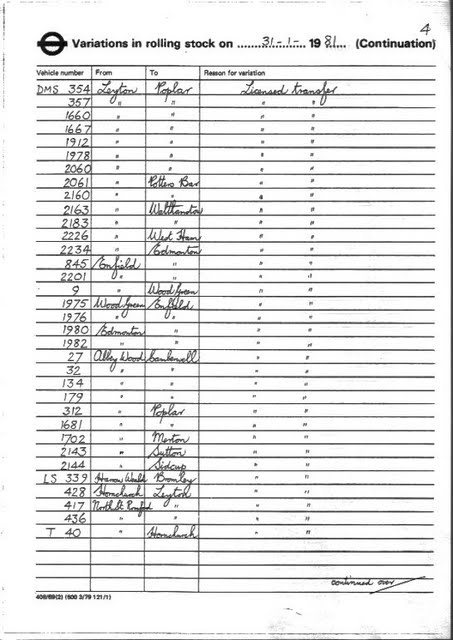 4
Variations in rolling stock on ........31-1-.... 19 81.... (Continuation)
Vehicle number From To Reason for variation
DMS 354 Leyton Poplar Licensed transfer
357 " " " "
1660 " " " "
1667 " " " "
1912 " " " "
1978 " " " "
2060 " " " "
2061 " Potters Bar " "
2160 " " " "
2163 " Walthamstow " "
2183 " " " "
2226 " West Ham " "
2234 " Edmonton " "
845 Enfield " " "
2201 " " " "
9 " Wood Green " "
1975 Wood Green Enfield " "
1976 " " " "
1980 Edmonton " " "
1982 " " " "
27 Abbey Wood Camberwell " "
32 " " " "
134 " " " "
179 " " " "
312 " Poplar " "
1681 " " " "
1702 " Merton " "
2143 " Sutton " "
2144 " Sidcup " "
LS 339 Harrow Weald Bromley " "
428 Hornchurch Leyton " "
417 North St Romford " " "
436 " " " "
T 40 " Hornchurch " "
continued over
408/69(2) (600 3/79 121/1)